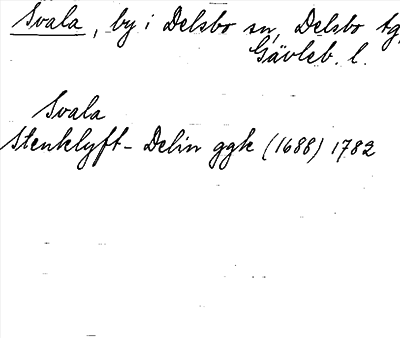 Svala, by i Delsbo sn, Delsbo tg,
Gävleb. l.
Svala
Stenklyft - Delin ggk (1688) 1782